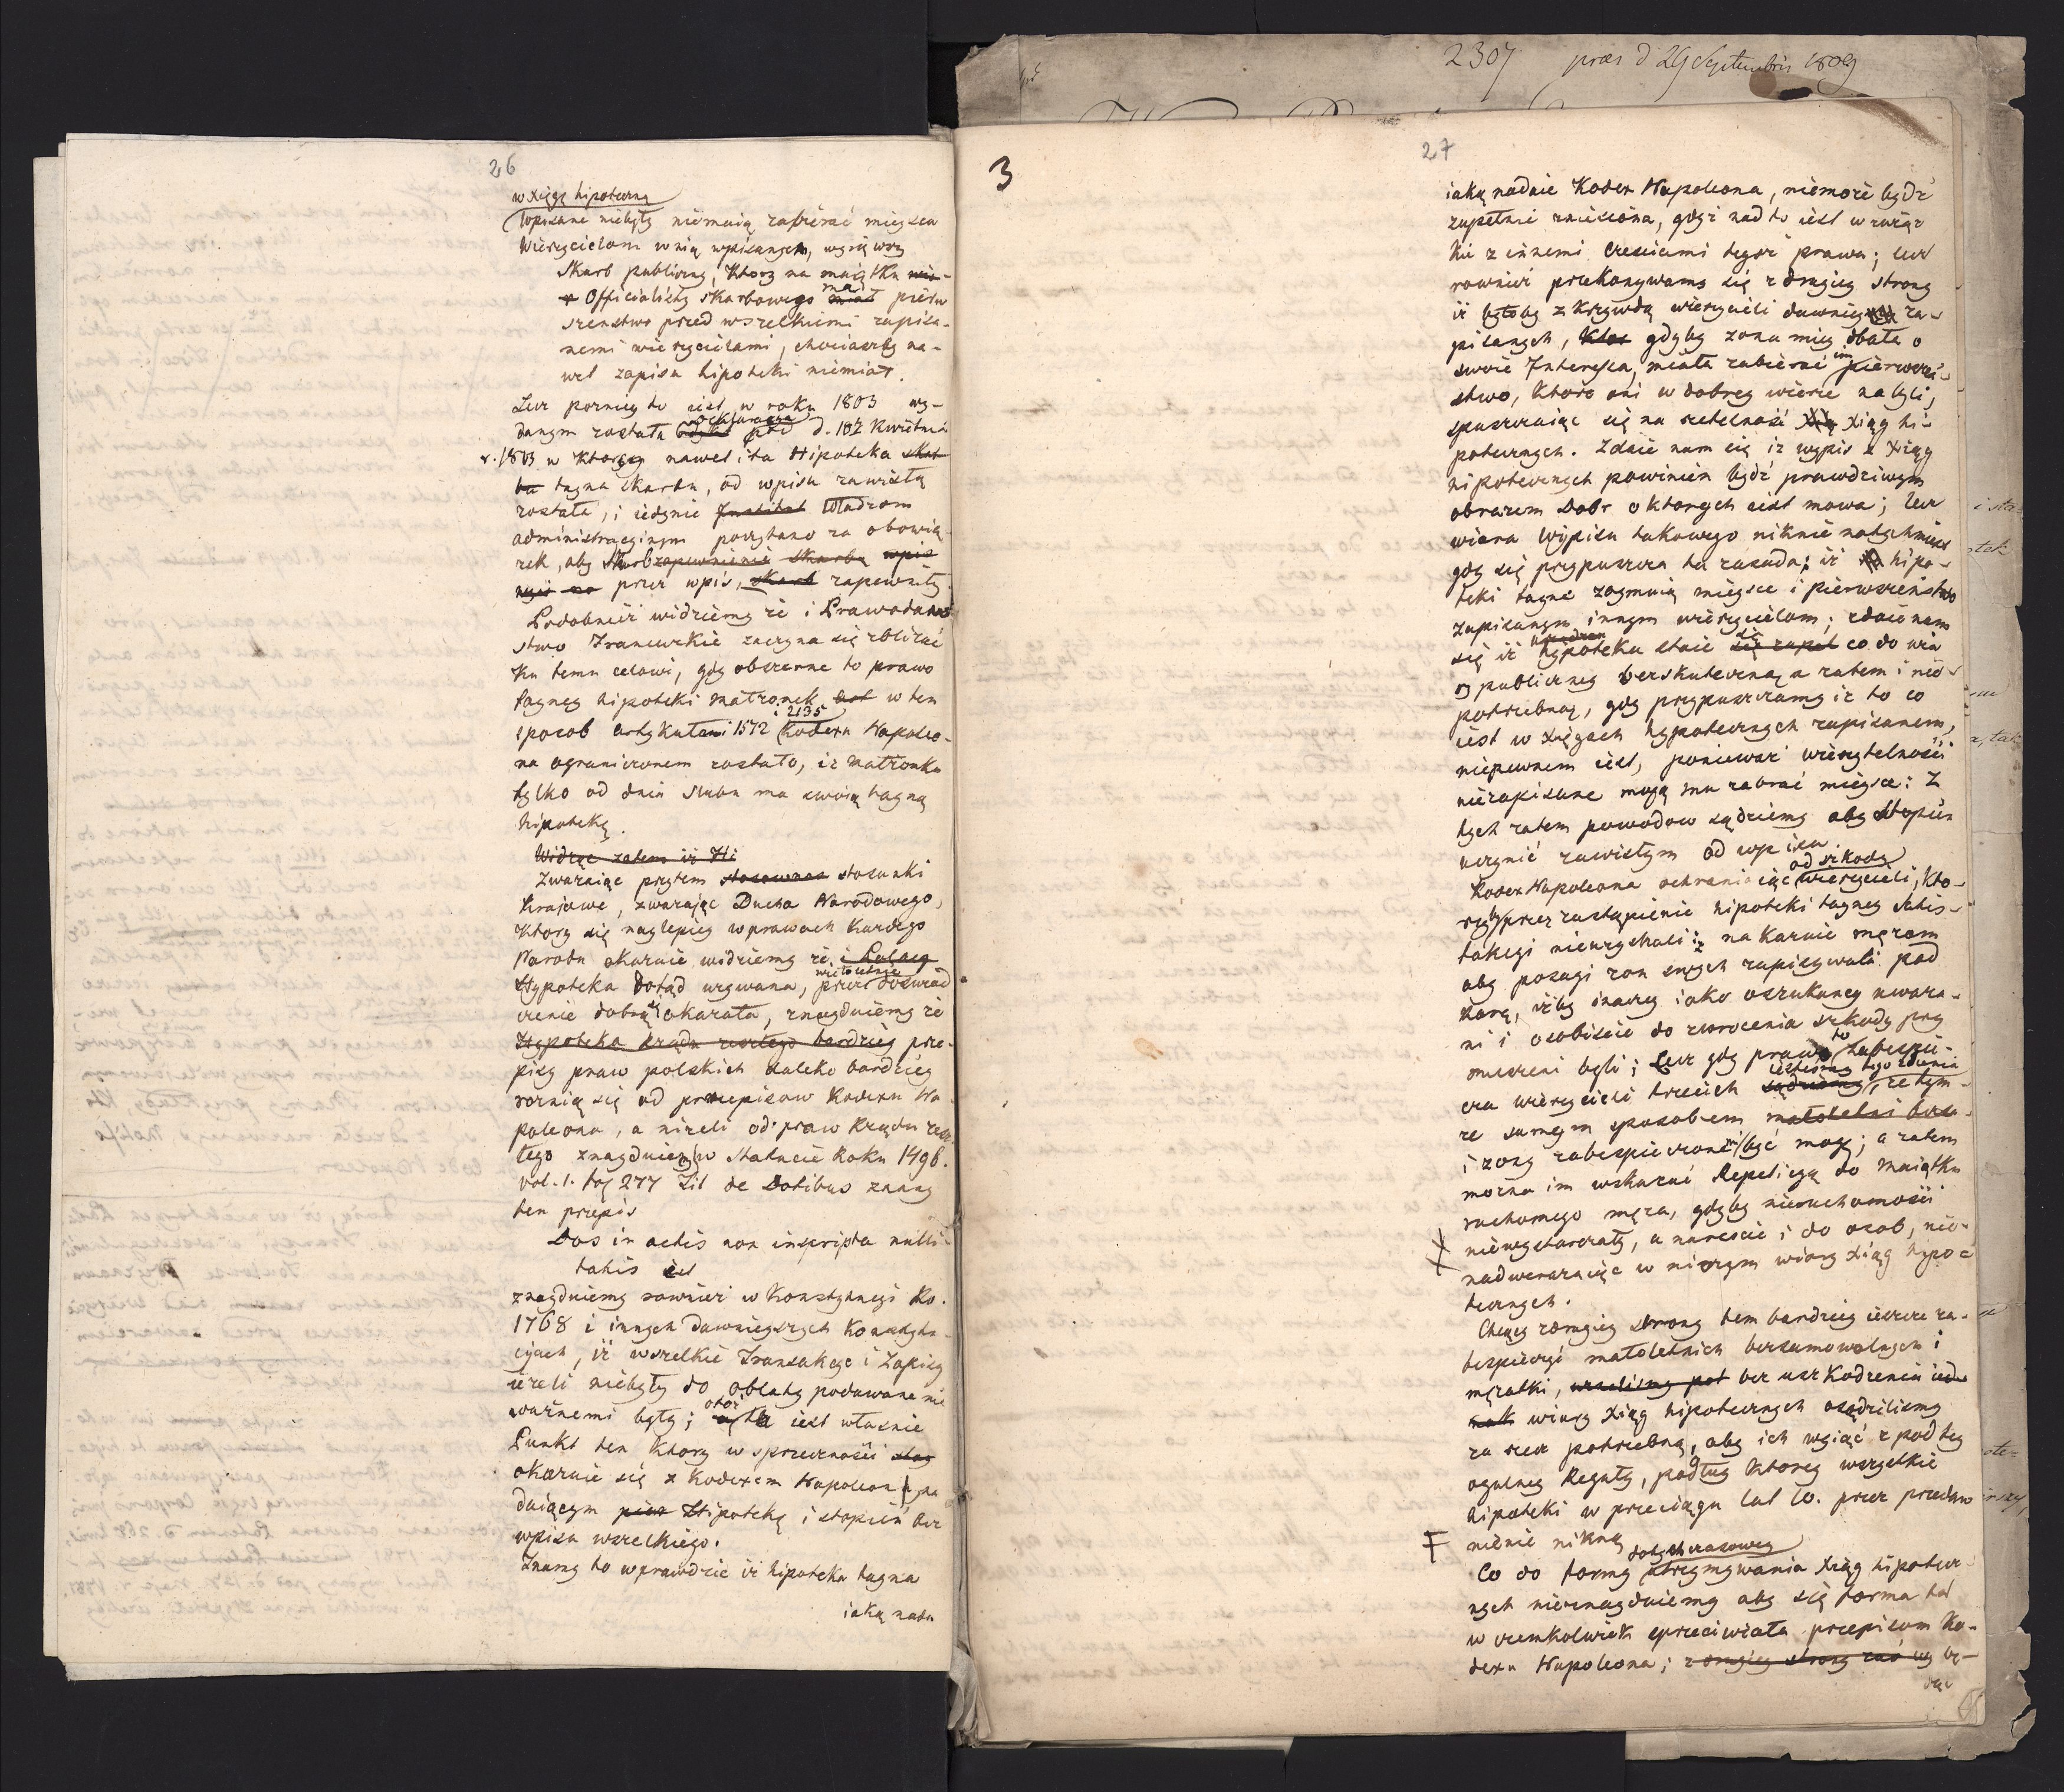 26
w xięgę hipoteczną
wpisane niebyły niemaią zabierać mieysca
Wierzycielom w nią wpisanym, wyiąwszy
Skarb publiczny, ktory na maiątku
Officialisty skarbowego ma pierw
szenstwo przed wszelkiemi zapisa-
nemi wierzycielami, chociażby na-
wet zapisu hipoteki niemiał.
Lecz pozniey to iest w roku 1803 wy-
danym została Deklaracya pod d. 187 Kwietnia
r. 1803 w ktorey nawet i ta Hipoteka skar
ba tayna skarbu, od wpisu zawisłą
została, i iedynie Władzom
administracyinym poczytano za obowią-
zek, aby Skarb zapewnienie skarbu wpis
przez wpis, skarb zapewniły.
Podobnież widziemy że i Prawodaw
stwo Francuzkie zaczyna się zbliżać
ku temu celowi, gdy obszerne to prawo
tayney hipoteki matronek w ten
sposob Artykułami 1572 i 2135 Kodexu Napoleo-
na ograniczonem zostało, iż matronka
tylko od dnia slubu ma swoią tayną
hipotekę.
Widząc zatem iż Hi
Zważaiąc przytem stosowne stosunki
Kraiowe, zważaiąc Ducha Narodowego,
ktory się naylepiey w prawach każdego
Narodu okazuie widziemy że
Hypoteka dotąd używana, przez wieloletnie doświad
czenie dobrą się okazała, znayduiemy że
Hypoteka krądu zeszłego bardziey prze-
pisy praw polskich daleko bardziey
rożnią się od przepisow Kodexu Na
poleona, a niżeli od praw Rządu zesz
łego znayduiemy w Statucie Roku 1496.
vol. 1. fol 277 Tit de Dotibus znany
ten przepis
Dos in actis non inscripta nulli-
tatis est
znayduiemy rownież w Konstytucyi Ro.
1768 i innych dawnieyszych Konstytu
cyach, iż wszelkie Transakcye i Zapisy
ieżeli niebyły do oblaty podawane nie
ważnemi były; otoż ta iest własnie
Punkt ten ktory w sprzeczności
okazuie się z Kodexem Napoleona na
daiącym Hipotekę i stopień bez
wpisu wszelkiego.
Znamy to wprawdzie iż hipoteka tayna
iaką nada
2307 praes d 29 Septembris 1809
3
27
iaką nadaie Kodex Napoleona, niemoże bydź
zupełnie zniesiona, gdyż nad to iest w związ
ku z innemi Częściami tegoż prawa; lecz
rownież przekonywamy się z drugiey strony
iż byłoby z krzywdą wierzycieli dawniey za-
pisanych, gdyby żona mniey dbała o
swoie Interessa, miała zabierać im pierwszeń-
stwo, ktore oni w dobrey wierze nabyli,
spuszczaiąc się na rzetelność Xiąg hi-
potecznych. Zdaie nam się iż wypis z Xiąg
hipotecznych powinien bydź prawdziwym
obrazem Dobr o ktorych iest mowa; lecz
wiara Wypisu takowego niknie natychmiast
gdy się przypuszcza ta zasada; iż hipo-
teki tayne zaymuią mieysce i pierwszeństwo
zapisanym innym wierzycielom; zdaie nam
się iż hypoteka staie się co do wia
ry publiczney bezskuteczną a zatem i nie-
potrzebną, gdy przypuszczamy iż to co
iest w xięgach hypotecznych zapisanem,
niepewnem iest, ponieważ wierzytelności
niezapisane mogą mu zabrać mieysce: Z
tych zatem powodow sądziemy aby stopień
uczynić zawisłym od wpisu.
Kodex Napoleona ochraniaiąc od szkody wierzycieli, kto-
rzyby przez zastąpienie hipoteki tayney satis-
fakcyi nieuzyskali iż nakazuie mężom
aby posagi żon swych zapisywali pod
karą, iżby inaczey iako oszukańcy uważa-
ni i osobiście do zwrocenia szkody przy
muszeni byli; Lecz gdy prawo to zabezpie-
cza wierzycieli trzecich iesteśmy tego zdania, że tym-
że samym sposobem małoletni bez
i żony zabezpieczonemi być mogą; a zatem
można im wskazać Repeticyą do maiątku
ruchomego męża, gdyby nieruchomości
niewystarczały, a nareście i do osob, nie-
nadwerażaiąc w niczym wiary Xiąg hipo-
tecznych.
Chcąc z drugiey strony tem bardziey ieszcze za-
bezpieczyć małoletnich bezsamowolnych i
mężatki, bez uszkodzenia ied
nak wiary Xiąg hipotecznych osądziliśmy
za rzecz potrzebną, aby ich wyiąć z pod tey
ogulney Reguły, podług ktorey wszystkie
hipoteki w przeciągu lat 10. przez przedaw
nienie nikną
Co do formy dotychczasowey utrzymywania Xiąg hipotecz
nych nieznayduiemy aby się forma ta
w czemkolwiek sprzeciwiała przepisom Ko-
dexu Napoleona; z drugiey strony zaś bę-
dąc